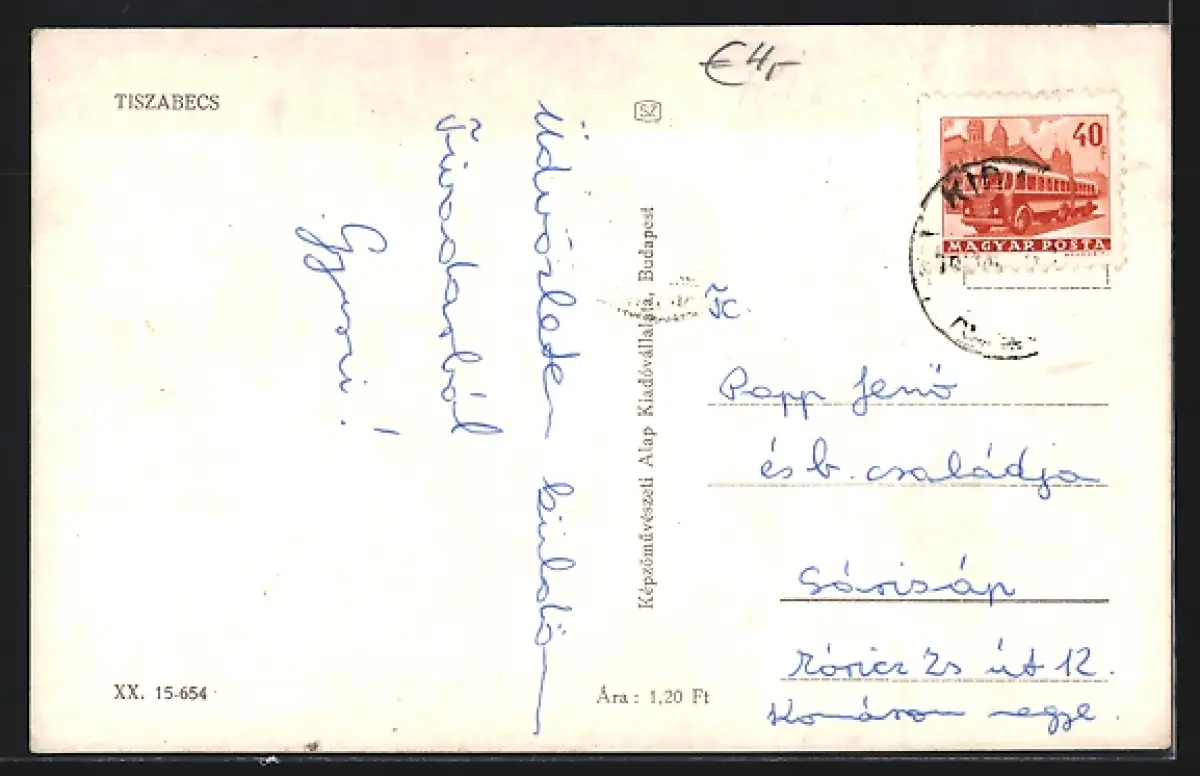 € 4,-
TISZABECS
SZ
Üdvözletem küldöm
Gyuri!
Képzőművészeti Alap Kiadóvállalata, Budapest
40 f
MAGYAR POSTA
Papp Jenő
és b. családja
Sárisáp
Móricz Zs út 12.
Komárom megye.
XX. 15-654
Ára: 1,20 Ft